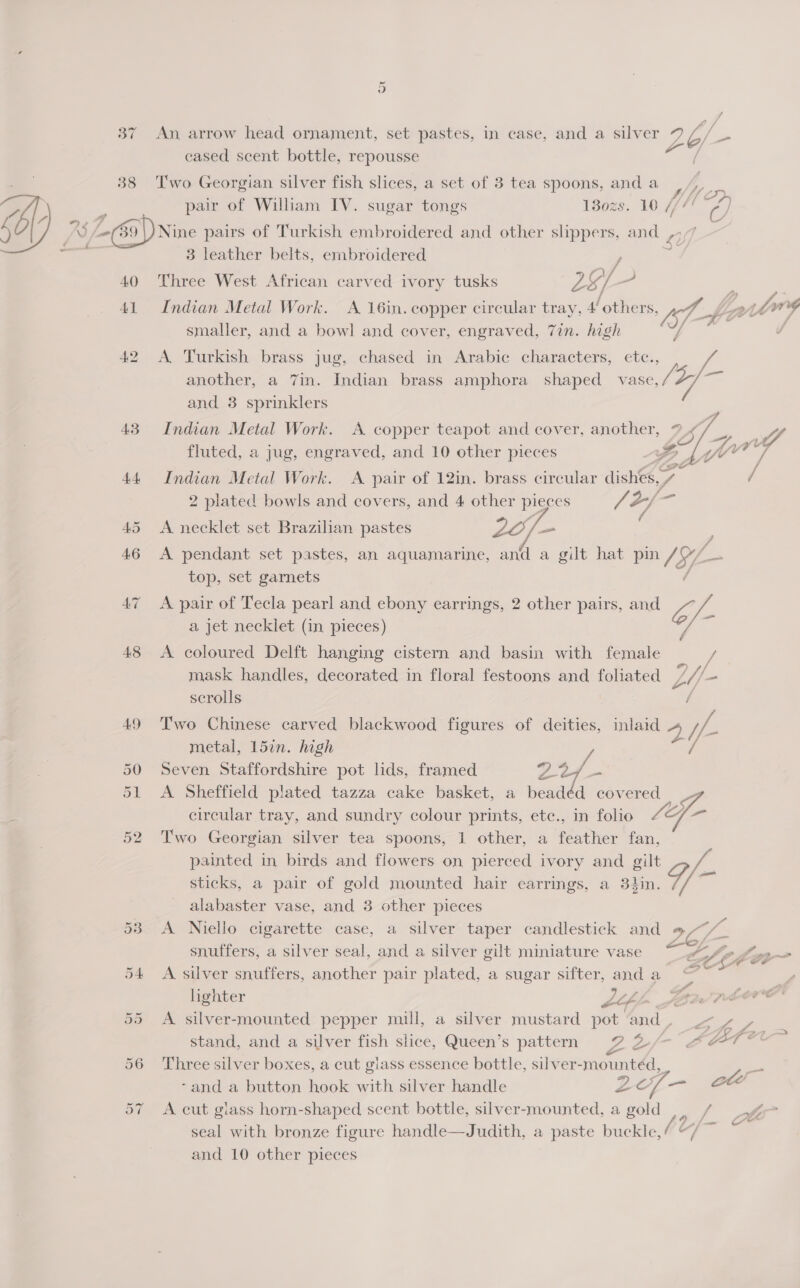 5
37 An arrow head ornament, set pastes, in case, and a silver 26/-
cased scent bottle, repousse
38 Two Georgian silver fish slices, a set of 3 tea spoons, and a
pair of William IV. sugar tongs 13ozs. 10
39 Nine pairs of Turkish embroidered and other slippers, and
3 leather belts, embroidered
40 Three West African carved ivory tusks 28/-
41 Indian Metal Work. A 16in. copper circular tray, 4 others,
smaller, and a bowl and cover, engraved, 7in. high
42 A Turkish brass jug, chased in Arabic characters, etc.,
another, a 7in. Indian brass amphora shaped vase, 12/-
and 3 sprinklers
43 Indian Metal Work. A copper teapot and cover, another,
fluted, a jug, engraved, and 10 other pieces
44 Indian Metal Work. A pair of 12in. brass circular dishes,
2 plated bowls and covers, and 4 other pieces 12/-
45 A necklet set Brazilian pastes 20/-
46 A pendant set pastes, an aquamarine, and a gilt hat pin
top, set garnets
47 A pair of Tecla pearl and ebony earrings, 2 other pairs, and
a jet necklet (in pieces) 6/-
48 A coloured Delft hanging cistern and basin with female
mask handles, decorated in floral festoons and foliated
scrolls
49 Two Chinese carved blackwood figures of deities, inlaid
metal, 15in. high
50 Seven Staffordshire pot lids, framed 22/-
51 A Sheffield plated tazza cake basket, a beaded covered
circular tray, and sundry colour prints, etc., in folio
52 Two Georgian silver tea spoons, 1 other, a feather fan,
painted in birds and flowers on pierced ivory and gilt
sticks, a pair of gold mounted hair earrings, a 3½in.
alabaster vase, and 3 other pieces
53 A Niello cigarette case, a silver taper candlestick and
snuffers, a silver seal, and a silver gilt miniature vase
54 A silver snuffers, another pair plated, a sugar sifter, and a
lighter
55 A silver-mounted pepper mill, a silver mustard pot and
stand, and a silver fish slice, Queen's pattern 22/-
56 Three silver boxes, a cut glass essence bottle, silver-mounted,
and a button hook with silver handle
57 A cut glass horn-shaped scent bottle, silver-mounted, a gold
seal with bronze figure handle—Judith, a paste buckle,
and 10 other pieces